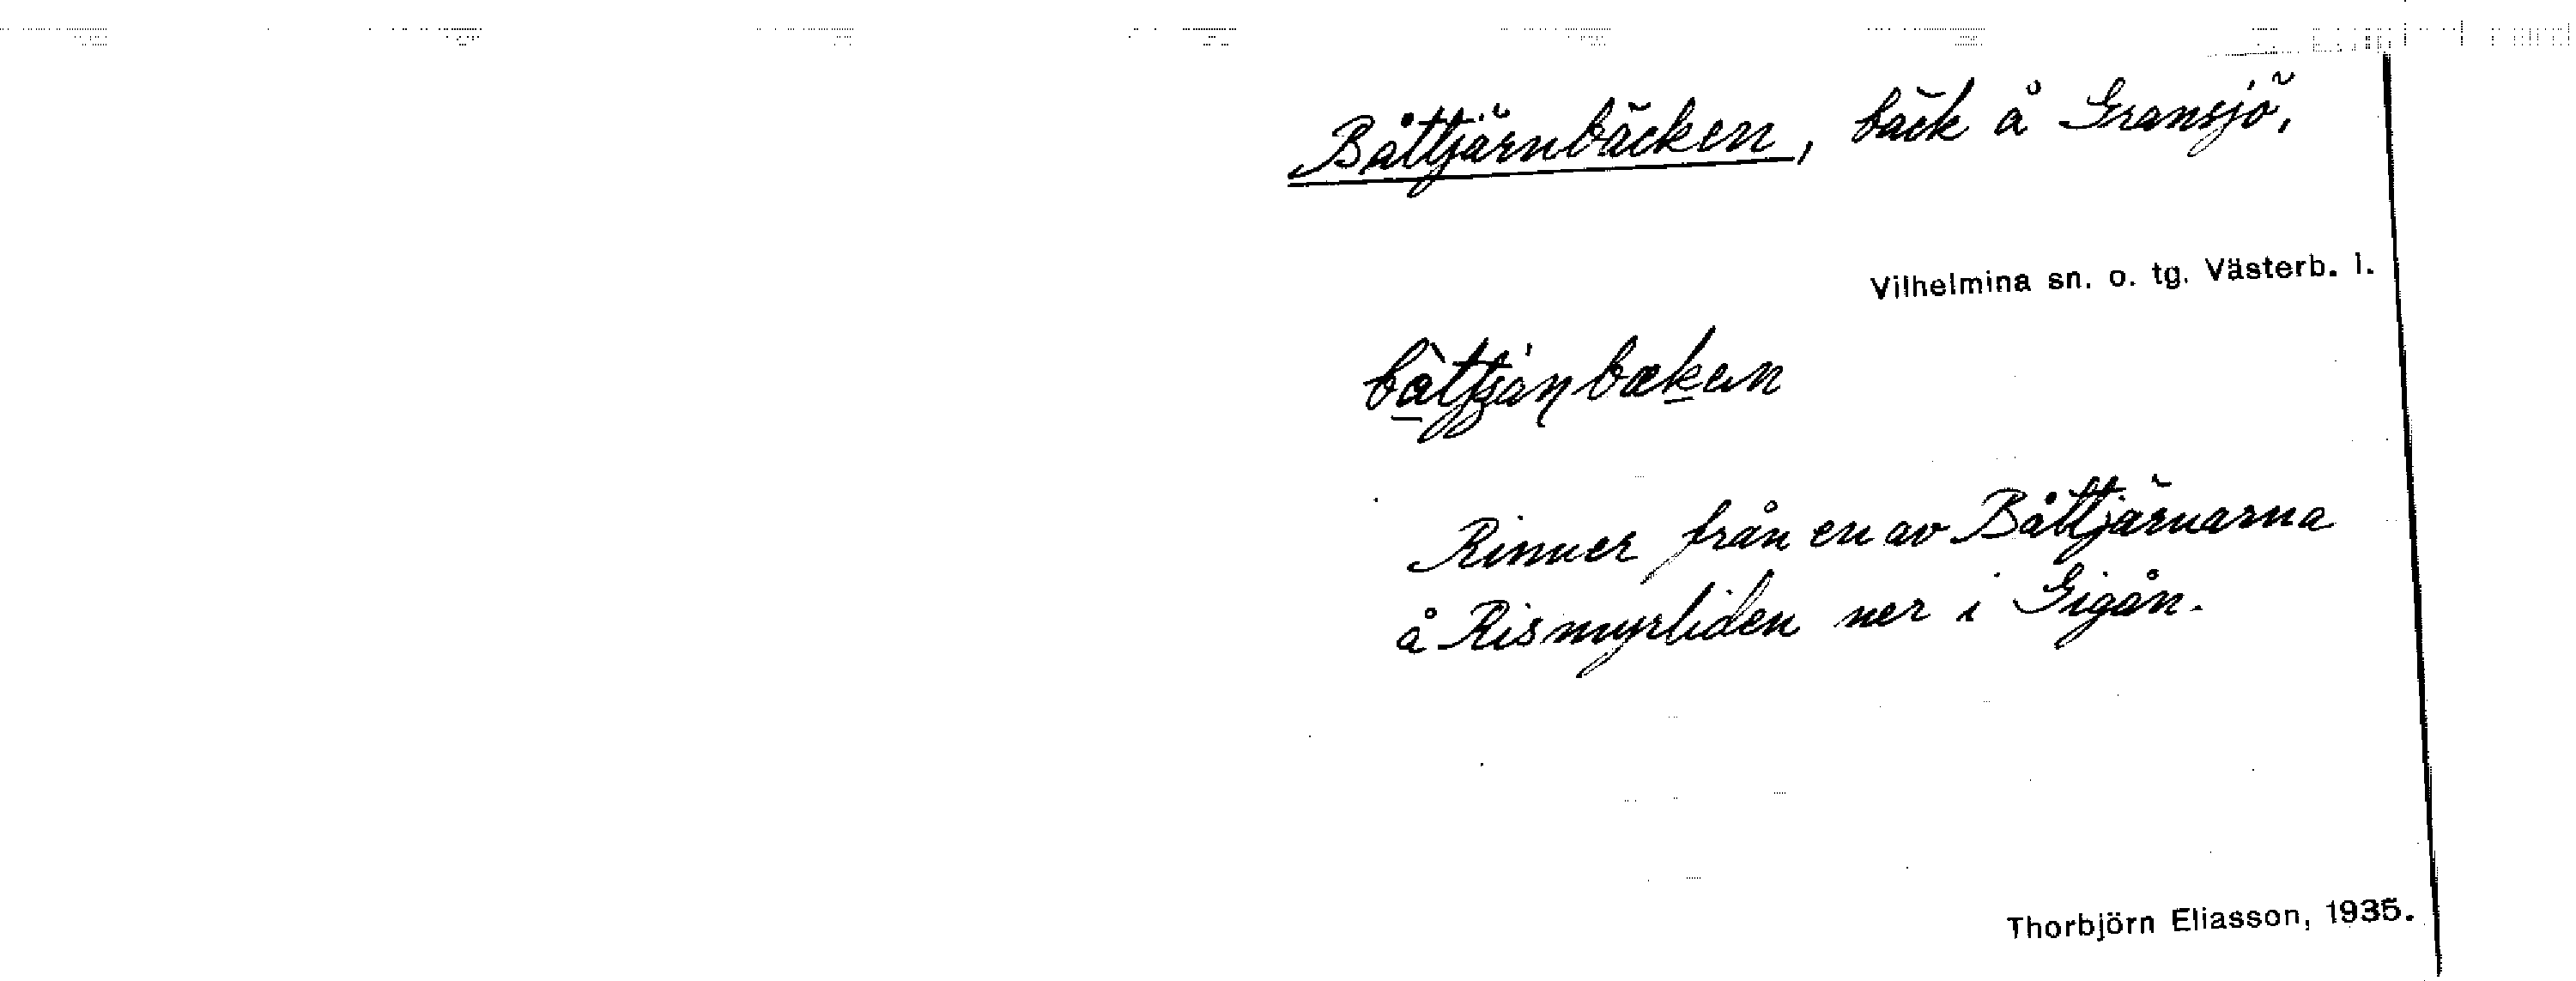 Båttjärnbäcken, bäck å Gransjö,
Vilhelmina sn. o. tg. Västerb. l.
Rinner från en av Båttjärnarna
å Rismyrliden ner i Gigån.
Thorbjörn Eliasson, 1935.